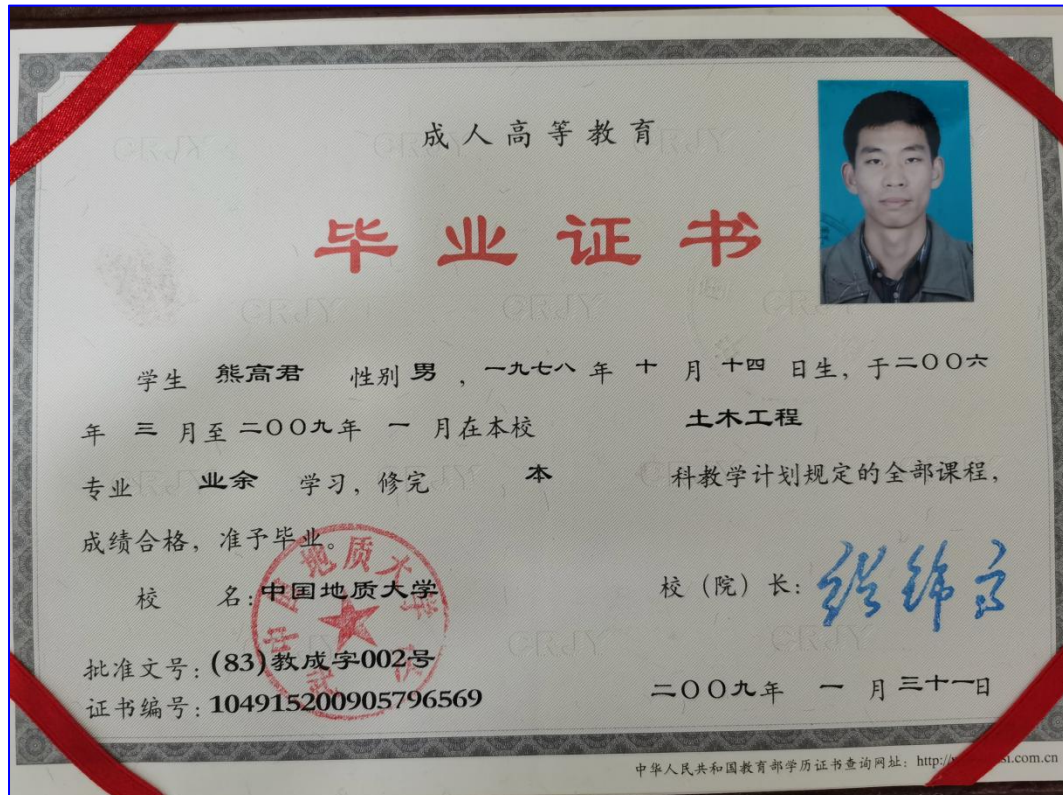 成人高等教育
毕业证书
学生 熊高君 性别 男 ，一九七八 年 十 月 十四 日生，于二〇〇六
年 三 月至 二〇〇九年 一 月在本校 土木工程
专业 业余 学习，修完 本 科教学计划规定的全部课程，
成绩合格，准予毕业。
校 名：中国地质大学
校（院）长：
批准文号：(83)教成字002号
证书编号：104915200905796569
二〇〇九年 一 月 三十一日
中华人民共和国教育部学历证书查询网址：http://
si.com.cn
中国地质大学
武汉
CRJY
CRJY
CRJY
CRJY
CRJY
CRJY